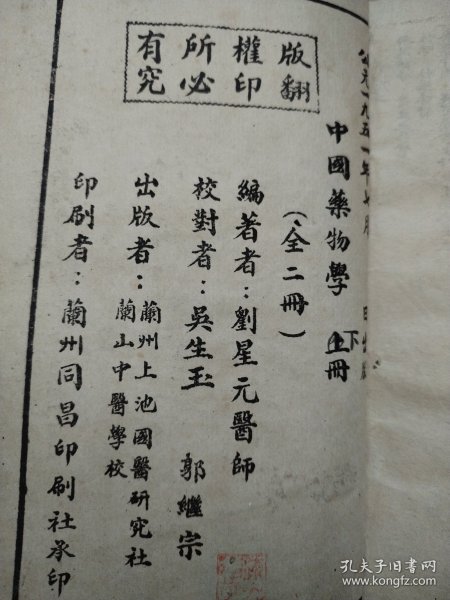 版權所有
翻印必究
公元一九五一年七月 出版
中國藥物學 下冊
(全二冊)
編著者：劉星元醫師
校對者：吳生玉 郭繼宗
出版者：蘭州上池國醫研究社
蘭山中醫學校
印刷者：蘭州同昌印刷社承印
孔夫子旧书网
www.kongfz.com